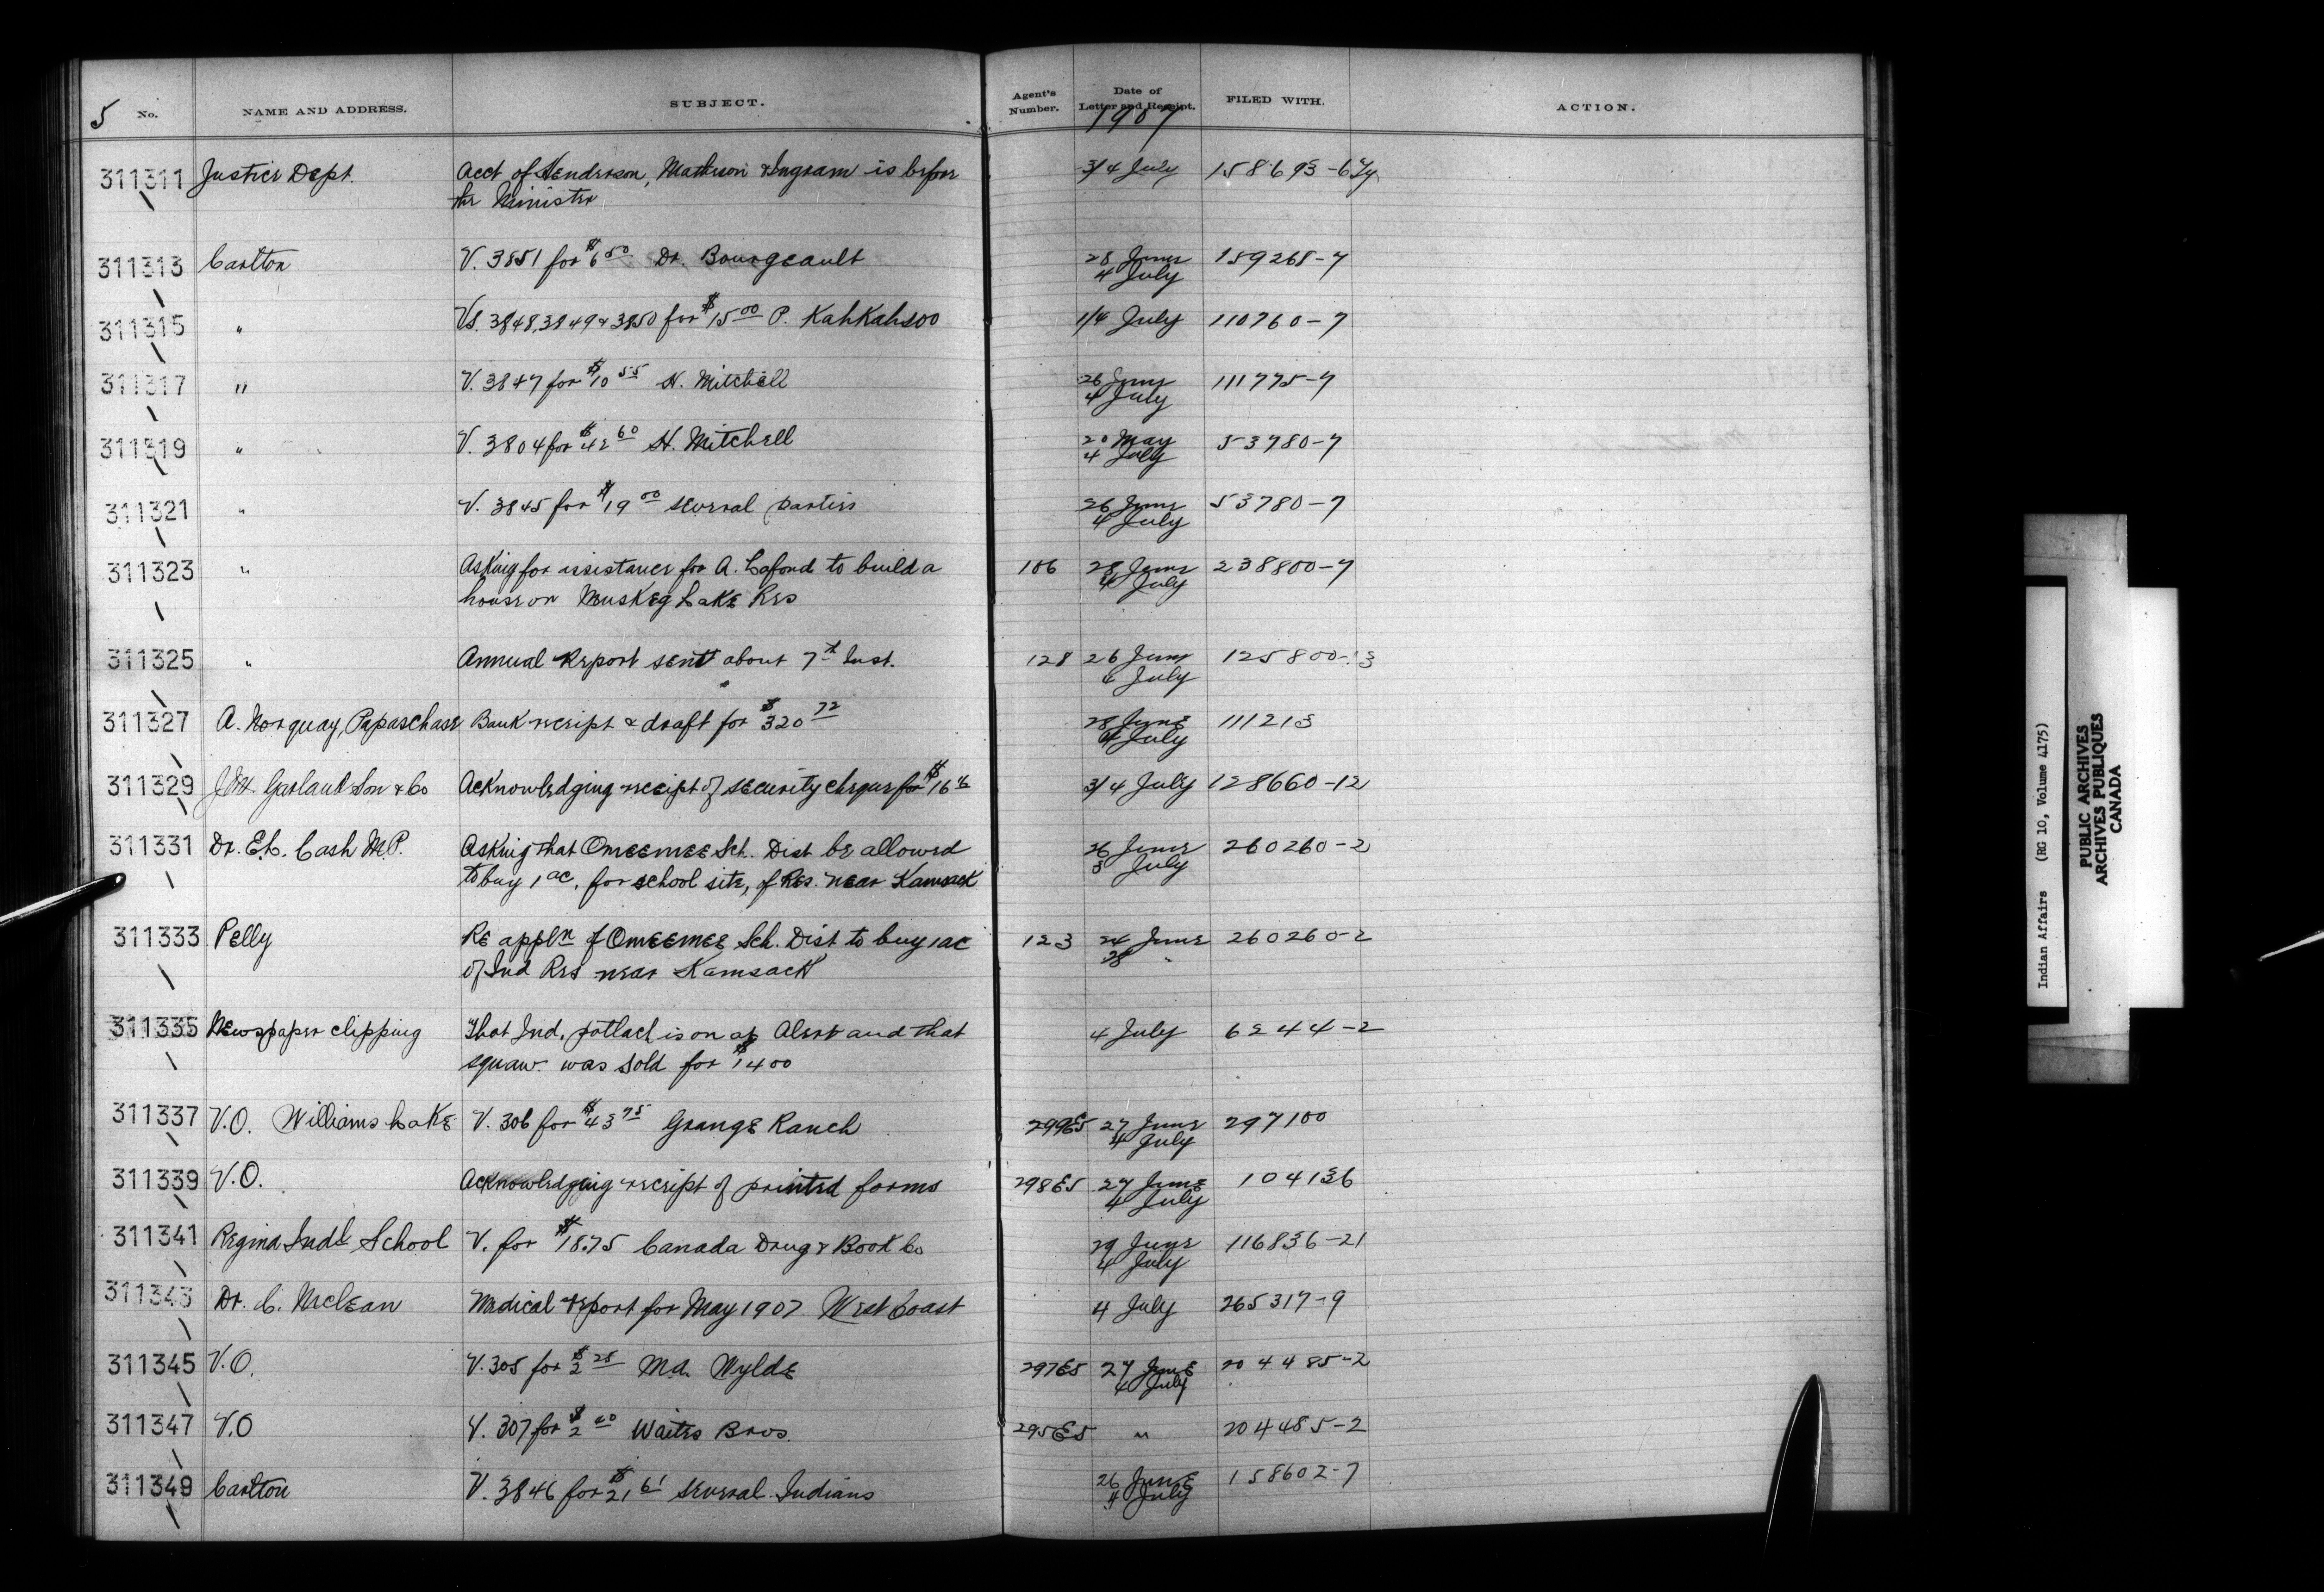 5 No. NAME AND ADDRESS. SUBJECT. Agent's Number. Date of Letter and Receipt. FILED WITH. ACTION.
1907
311311 Justice Dept. Acct of Henderson, Matheson & Ingram is before 3/4 July 158693-6
the Minister
311313 Carlton V. 3851 for $6 50 Dr. Bourgeault 28 June 159268-7
4 July
311315 " Vs. 3848, 3849 & 3850 for $15 00 P. KahKahsoo 1/4 July 110760-7
311317 " V. 3847 for $10 55 H. Mitchell 26 June 111775-7
4 July
311319 " V. 3804 for $42 60 H. Mitchell 20 May 53780-7
4 July
311321 " V. 3845 for $19 00 several parties 26 June 53780-7
4 July
311323 " Asking for assistance for A. Lafond to build a 106 28 June 238800-7
house on Muskeg Lake Res 4 July
311325 " Annual Report sent about 7th Inst. 128 26 June 125800-13
4 July
311327 A. Norquay, Papaschase Bank receipt & draft for $320 72 28 June 111213
4 July
311329 J.M. Garland Son & Co Acknowledging receipt of security cheque for $16 3/4 July 128660-12
311331 Dr. E.L. Cash M.P. Asking that Omeemee Sch. Dist be allowed 26 June 260260-2
to buy 1 ac. for school site, of Res. near Kamsack 3 July
311333 Pelly Re appln of Omeemee Sch. Dist to buy 1 ac 123 24 June 260260-2
of Ind Res near Kamsack 28 "
311335 Newspaper clipping That Ind. potlach is on at Alert and that 4 July 6244-2
squaw was sold for $1400
311337 V.O. Williams Lake V. 306 for $43 75 Grange Ranch 299E5 27 June 297100
4 July
311339 V.O. Acknowledging receipt of printed forms 298E5 27 June 104136
4 July
311341 Regina Indl School V. for $18.75 Canada Drug & Book Co 29 June 116836-21
4 July
311343 Dr. C. McLean Medical report for May 1907 West Coast 4 July 265317-9
311345 V.O. V. 305 for $2 25 Md. Wylde 297E5 27 June 204485-2
4 July
311347 V.O V. 307 for $2 40 Waites Bros. 295E5 " 204485-2
311349 Carlton V. 3846 for $21 61 several Indians 26 June 158602-7
4 July
Indian Affairs (RG 10, Volume 4175)
PUBLIC ARCHIVES
ARCHIVES PUBLIQUES
CANADA